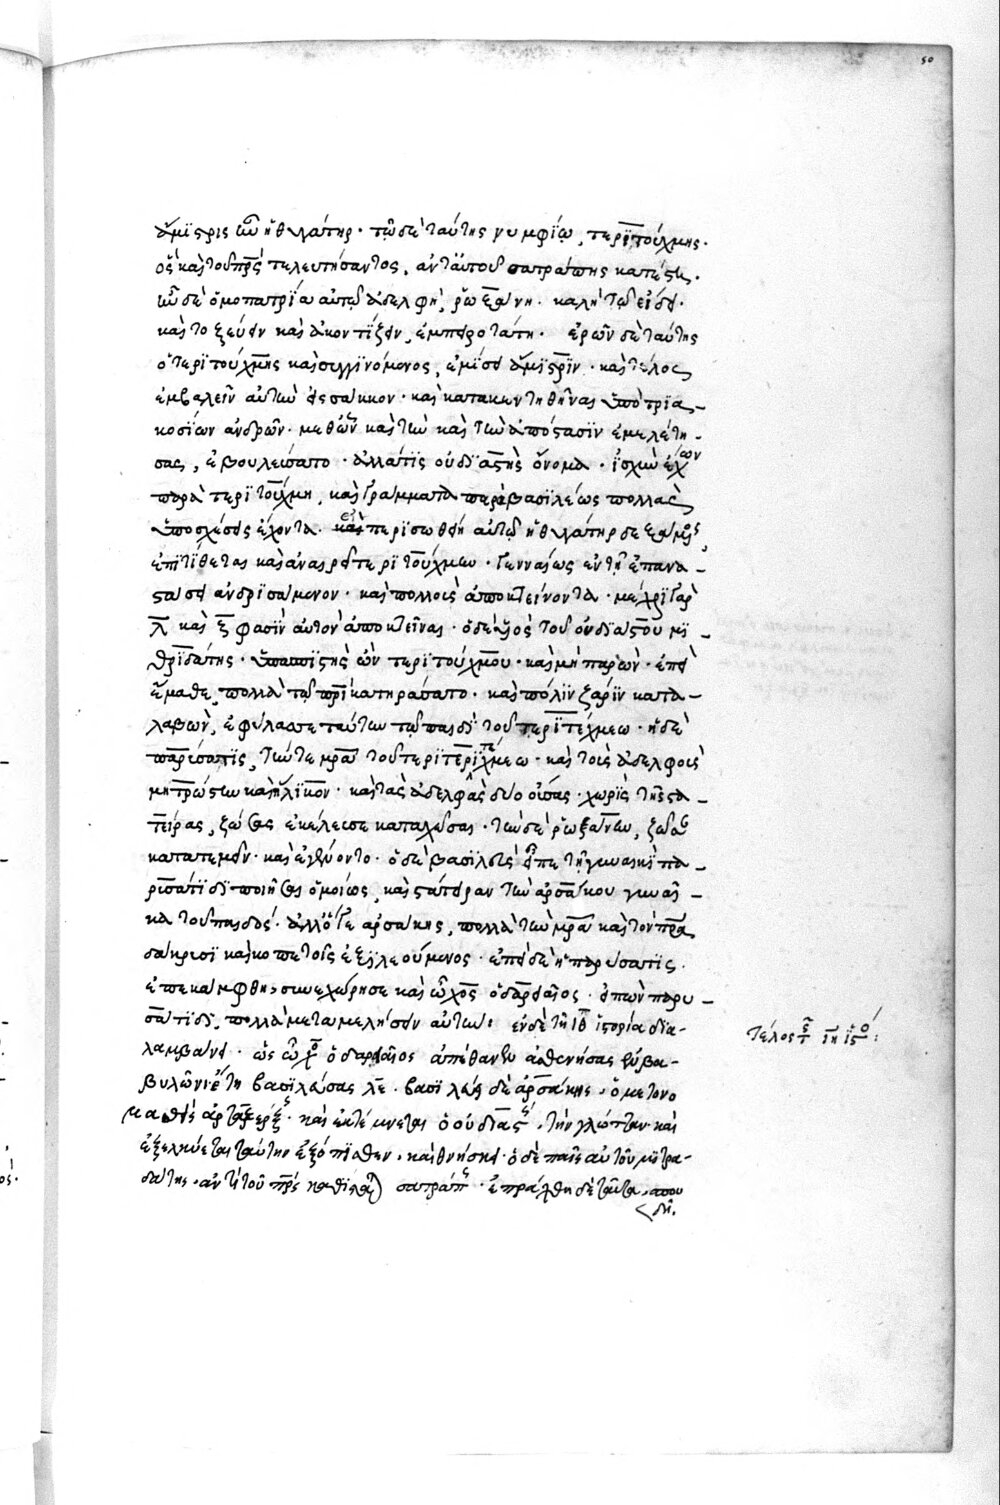 50
ἄμϊστρις ἦν ἡ θυγάτηρ· τῶ δὲ ταύτης νυμφίω, τεριτούχμης·
ὃς καὶ τοῦ πρς τελευτήσαντος, ἀντ' αὐτοῦ σατράπης κατέστη·
ἦν δὲ ὁμοπατρία αὐτῶ ἀδελφὴ, ῥωξάνη· καλὴ τῶ εἴδει·
καὶ τοξεύειν καὶ ἀκοντίζειν, ἐμπειροτάτη· ἐρῶν δὲ ταύτης
ὁ τεριτούχμης καὶ συγγινόμενος, ἐμίσει ἄμϊστριν· καὶ τέλος
ἐμβαλεῖν αὐτὴν εἰς σάκκον· καὶ κατακεντηθῆναι ὑπὸ τρια-
κοσίων ἀνδρῶν· μεθ' ὧν καὶ τὴν καὶ τὴν ἀπόστασιν ἐμελέτη-
σας, ἐβουλεύσατο· ἀλλά τις οὐδϊάστης ὄνομα· ἰσχὺν ἔχων
παρὰ τεριτούχμη, καὶ γράμματα παρὰ βασιλέως πολλὰς
ὑποσχέσεις ἔχοντα· εἰ περισωθείη αὐτῶ ἡ θυγάτηρ δεξάμενος,
ἐπιτίθεται καὶ ἀναιρεῖ τεριτούχμην· γενναίως ἐν τῆ ἐπανα-
στάσει ἀνδρισάμενον· καὶ πολλοὺς ἀποκτείνοντα· μέχρϊ γὰρ
λ καὶ ξ φασὶν αὐτὸν ἀποκτεῖναι· ὁ δὲ υἱὸς τοῦ οὐδϊάστου μϊ-
θριδάτης· ὑπασπϊστὴς ὢν τεριτούχμου· καὶ μὴ παρὼν· ἐπεὶ
ἔμαθε, πολλὰ τῶ πρὶ κατηράσατο· καὶ πόλϊν ζαρϊν κατα-
λαβὼν, ἐφύλασσε ταύτην τῶ παιδὶ τοῦ τεριτέχμεω· ἡ δὲ
παρύσατις, τήν τε μρα τοῦ τεριτέχμεω· καὶ τοὺς ἀδελφοὺς
μητρώστην καὶ ἥλϊκον· καὶ τὰς ἀδελφὰς δύο οὔσας· χωρὶς τῆς στα-
τείρας, ζώσας ἐκέλευσε καταχῶσαι· τὴν δὲ ῥωξάνην, ζῶσαν
κατατεμεῖν· καὶ ἐγένοντο· ὁ δὲ βασϊλεὺς εἶπε τῆ γυναικϊ πα-
ρυσάτιδϊ ποιῆσαι ὁμοίως, καὶ στάτειραν τὴν ἀρσάκου γυναῖ-
κα τοῦ παιδός· ἀλλ' ὅ γε ἀρσάκης, πολλὰ τὴν μρα καὶ τὸν πρα
δάκρυσϊ καὶ κοπετοῖς ἐξϊλεούμενος· ἐπεὶ δὲ ἡ παρύσατις
ἐπεκάμφθη, συνεχώρησε καὶ ὦχος ὁ δαρειαῖος· εἰπὼν παρυ-
σάτϊδι, πολλὰ μεταμελήσειν αὐτὴν: ἐν δὲ τῆ ιθ ἱστορία δια-
λαμβάνει· ὡς ὦχος ὁ δαρειαῖος ἀπέθανεν ἀσθενήσας ἐν βα-
βυλῶνι· ἔτη βασϊλεύσας λε· βασιλεύει δὲ ἀρσάκης, ὁ μετονο
μαθεὶς ἀρταξέρξης· καὶ ἐκτέμνεται ὁ οὐδιάστης, τὴν γλῶτταν· καὶ
ἐξελκύεται ταύτην ἐξόπϊσθεν, καὶ θνήσκει· ὁ δὲ παῖς αὐτοῦ μϊτρα-
δάτης, ἀντὶ τοῦ πρς καθίσταται σατράπης· ἐπράχθη δὲ ταῦτα, σπου
δῆ.
τέλος τ ιη ἱστο: